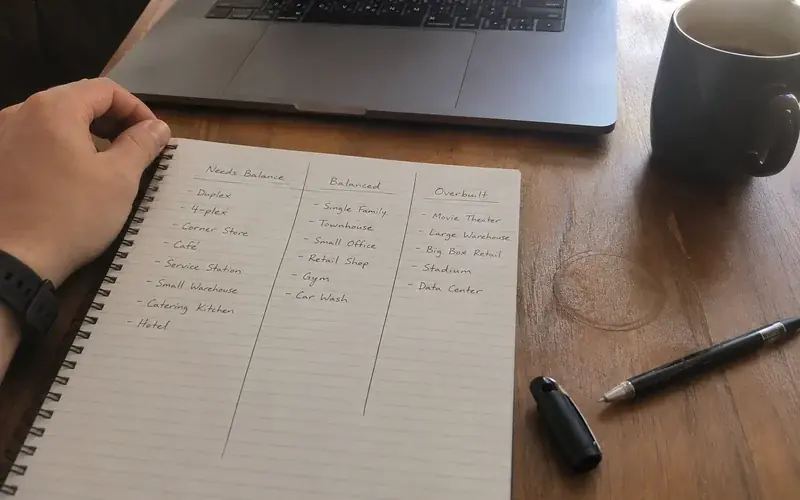 Needs Balance
- Duplex
- 4-plex
- Corner Store
- Café
- Service Station
- Small Warehouse
- Catering Kitchen
- Hotel
Balanced
- Single Family
- Townhouse
- Small Office
- Retail Shop
- Gym
- Car Wash
Overbuilt
- Movie Theater
- Large Warehouse
- Big Box Retail
- Stadium
- Data Center